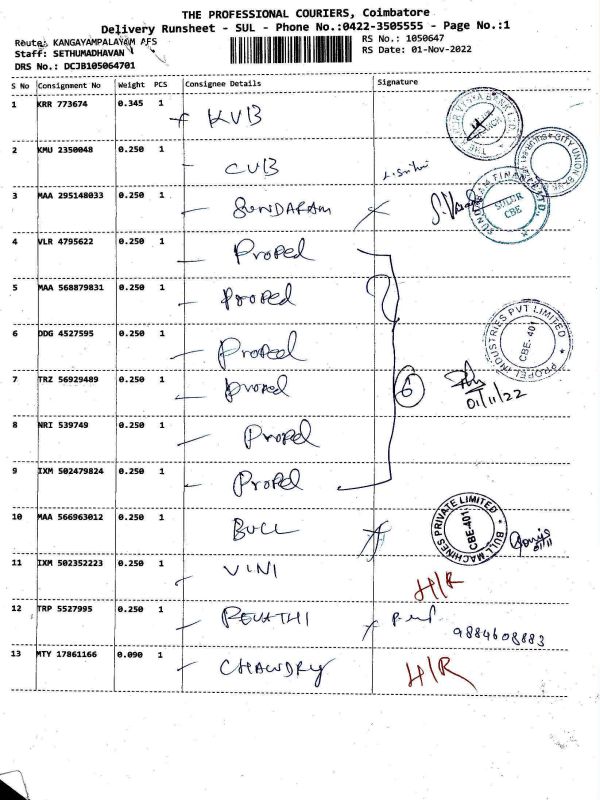 THE PROFESSIONAL COURIERS, Coimbatore
Delivery Runsheet - SUL - Phone No.:0422-3505555 - Page No.:1
Route: KANGAYAMPALAYAM AFS
RS No.: 1050647
Staff: SETHUMADHAVAN
RS Date: 01-Nov-2022
DRS No.: DCJB105064701
S No Consignment No Weight PCS Consignee Details Signature
1 KRR 773674 0.345 1 KVB
2 KMU 2350048 0.250 1 CUB
3 MAA 295148033 0.250 1 SUNDARAM
SUNDARAM FINANCE LTD., SULUR CBE
4 VLR 4795622 0.250 1 Propel
5 MAA 568879831 0.250 1 Propel
6 DDG 4527595 0.250 1 Propel
PROPEL INDUSTRIES PVT LIMITED CBE-401
7 TRZ 56929489 0.250 1 Propel 6
01/11/22
8 NRI 539749 0.250 1 Propel
9 IXM 502479824 0.250 1 Propel
10 MAA 566963012 0.250 1 BULL
BULL MACHINES PRIVATE LIMITED CBE-401
11 IXM 502352223 0.250 1 VINI H/R
12 TRP 5527995 0.250 1 REVATHI
9884608883
13 MTY 17861166 0.090 1 CHAWDRY H/R